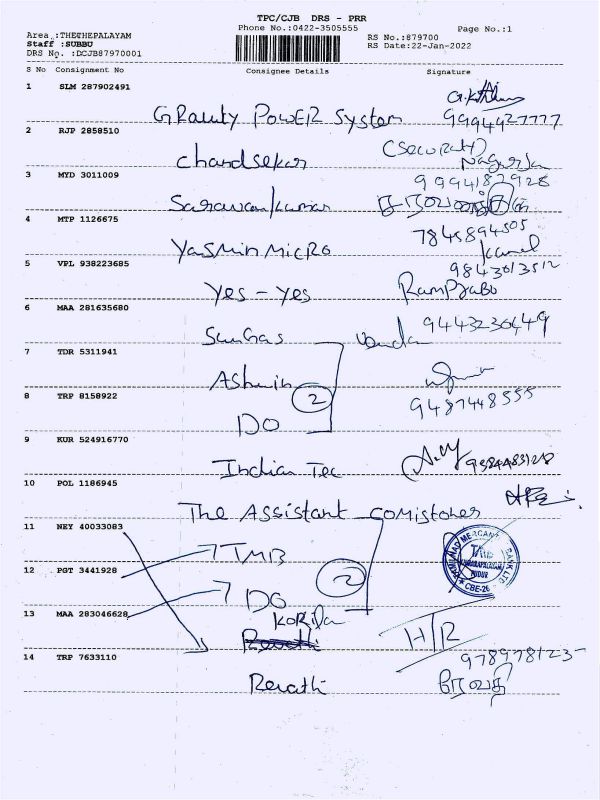 TPC/CJB DRS - PRR
Phone No.:0422-3505555
Page No.:1
Area :THETHEPALAYAM
Staff :SUBBU
DRS No. :DCJB87970001
RS No.:879700
RS Date:22-Jan-2022
S No Consignment No Consignee Details Signature
1 SLM 287902491
Gravity Power System 9994927777
2 RJP 2858510
(Security)
Chandsekar
3 MYD 3011009
9994187928
Sarawankumar
4 MTP 1126675
7845894505
Yasmin Micro Kamel
5 VPL 938223685
9843013512
Yes - Yes Rampzabo
6 MAA 281635680
SunGas 9443236449
7 TDR 5311941
Ashwin
8 TRP 8158922
2 9487448555
DO
9 KUR 524916770
Indian Tec
10 POL 1186945
The Assistant comistoner
11 NEY 40033083
TMB
TAMILNAD MERCANTILE BANK LTD
TMB
PUDUR
CBE-26
12 PGT 3441928
2
DO
13 MAA 283046628
H/R
14 TRP 7633110
978978123
Revathi ரேவதி